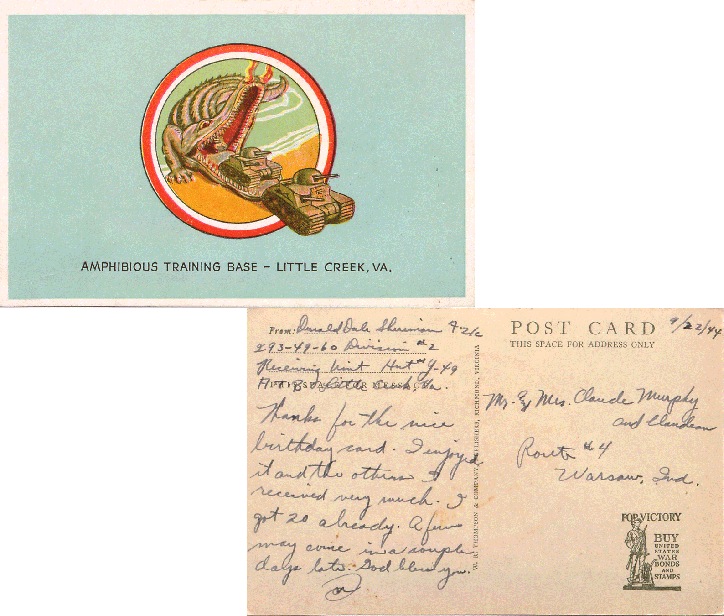 AMPHIBIOUS TRAINING BASE - LITTLE CREEK, VA.
From: Donald Dale Sherman S 2/c
293-49-60 Division #2
Receiving Unit Hut # Y-49
A.T.B. Little Creek, Va.
Thanks for the nice
birthday card. I enjoyed
it and the others I
received very much. I
got 20 already. A few
may come in a couple
days late. God bless you.
W. R. THOMPSON & COMPANY, PUBLISHERS, RICHMOND, VIRGINIA
POST CARD
9/22/44
THIS SPACE FOR ADDRESS ONLY
Mr. & Mrs. Claude Murphy
and
Route #4
Warsaw, Ind.
FOR VICTORY
BUY
UNITED
STATES
WAR
BONDS
AND
STAMPS